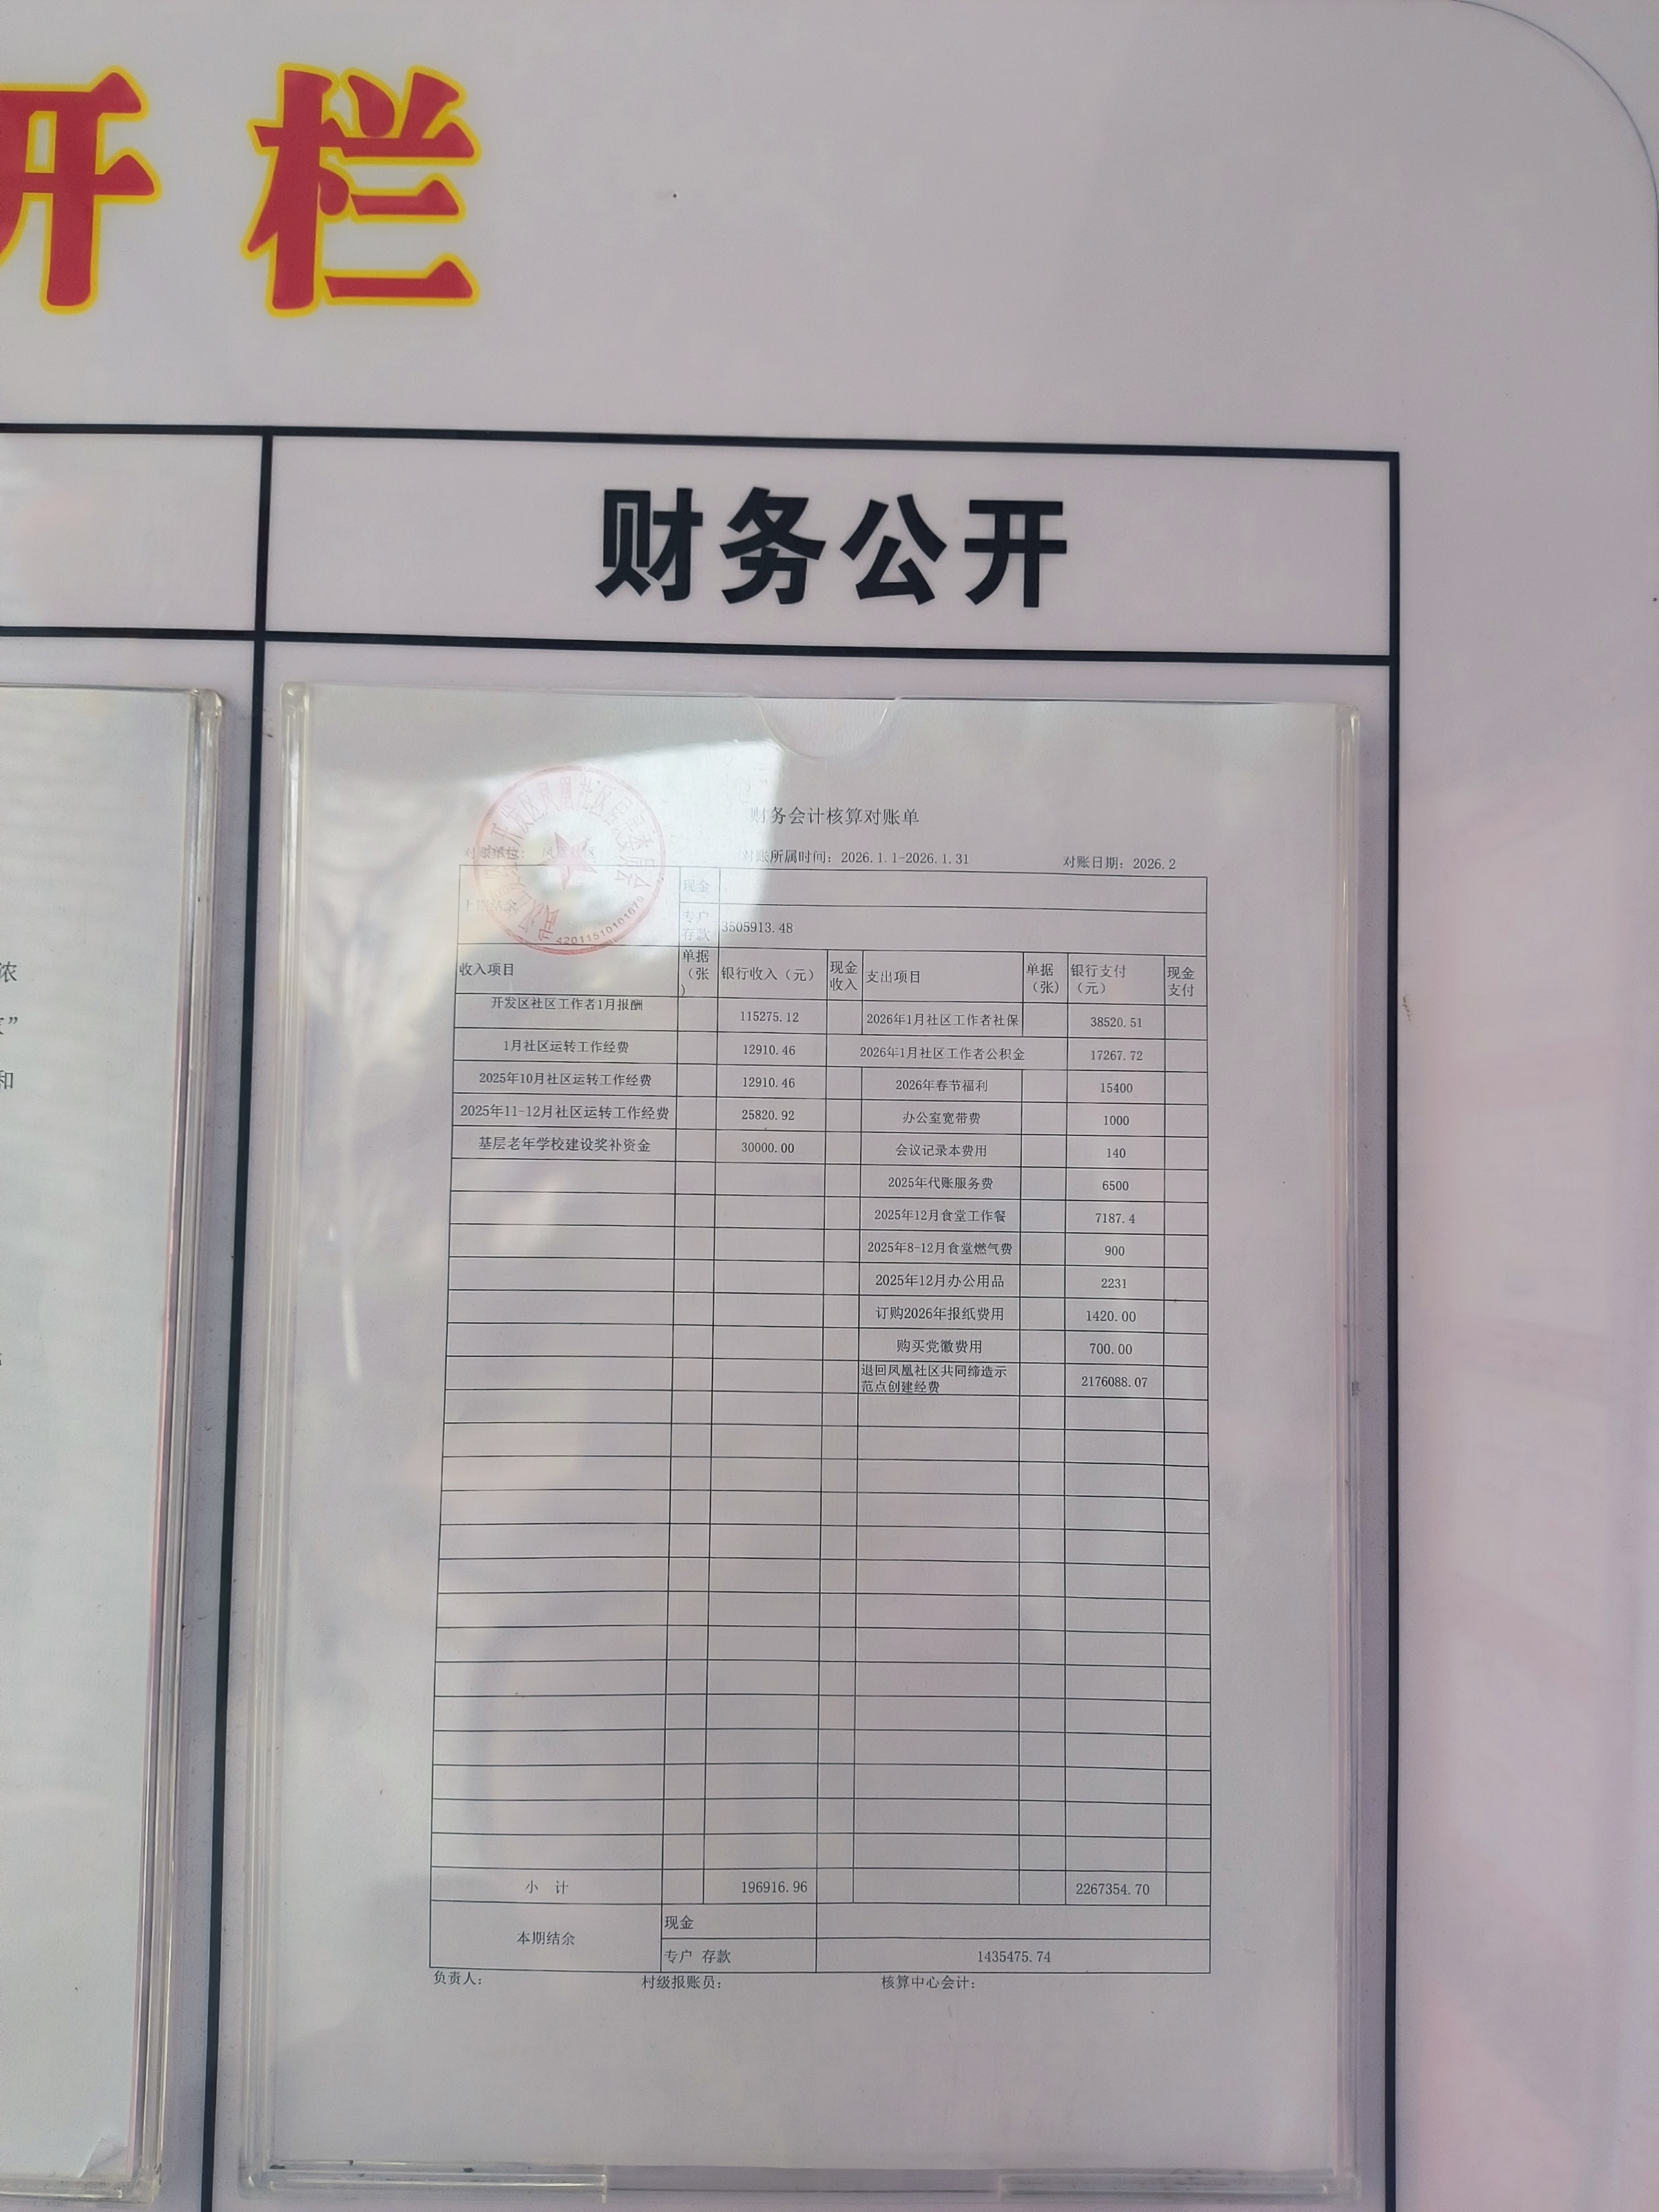 开栏
财务公开
浓
”
和
财务会计核算对账单
开发区凤凰社区居民委员会
42011510101679
对账所属时间：2026.1.1-2026.1.31 对账日期：2026.2
上期结余 现金
专户存款 3505913.48
收入项目 单据（张） 银行收入（元） 现金收入 支出项目 单据（张） 银行支付（元） 现金支付
开发区社区工作者1月报酬 115275.12 2026年1月社区工作者社保 38520.51
1月社区运转工作经费 12910.46 2026年1月社区工作者公积金 17267.72
2025年10月社区运转工作经费 12910.46 2026年春节福利 15400
2025年11-12月社区运转工作经费 25820.92 办公室宽带费 1000
基层老年学校建设奖补资金 30000.00 会议记录本费用 140
2025年代账服务费 6500
2025年12月食堂工作餐 7187.4
2025年8-12月食堂燃气费 900
2025年12月办公用品 2231
订购2026年报纸费用 1420.00
购买党徽费用 700.00
退回凤凰社区共同缔造示范点创建经费 2176088.07
小 计 196916.96 2267354.70
本期结余 现金
专户 存款 1435475.74
负责人： 村级报账员： 核算中心会计：